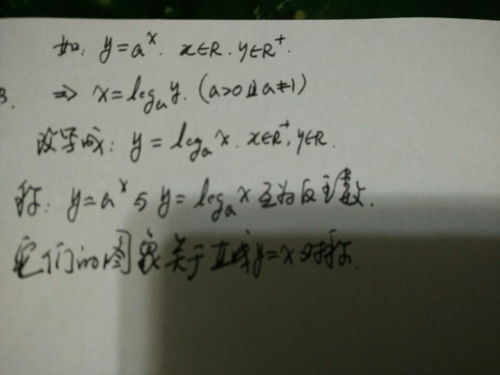 如: y=aˣ. x∈R. y∈R⁺.
3. ⇒ x=logₐy. (a>0且a≠1)
改写成: y=logₐx. x∈R⁺, y∈R.
称: y=aˣ与y=logₐx互为反函数.
它们的图象关于直线y=x对称.